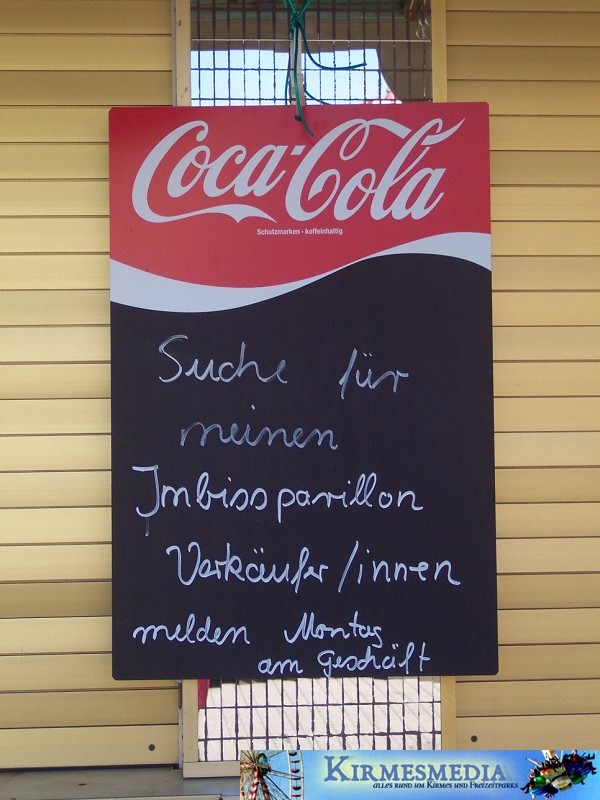 Coca-Cola
Schutzmarken - koffeinhaltig
Suche für
meinen
Imbisspavillon
Verkäufer/innen
melden Montag
am Geschäft
KIRMESMEDIA
ALLES RUND UM KIRMES UND FREIZEITPARKS